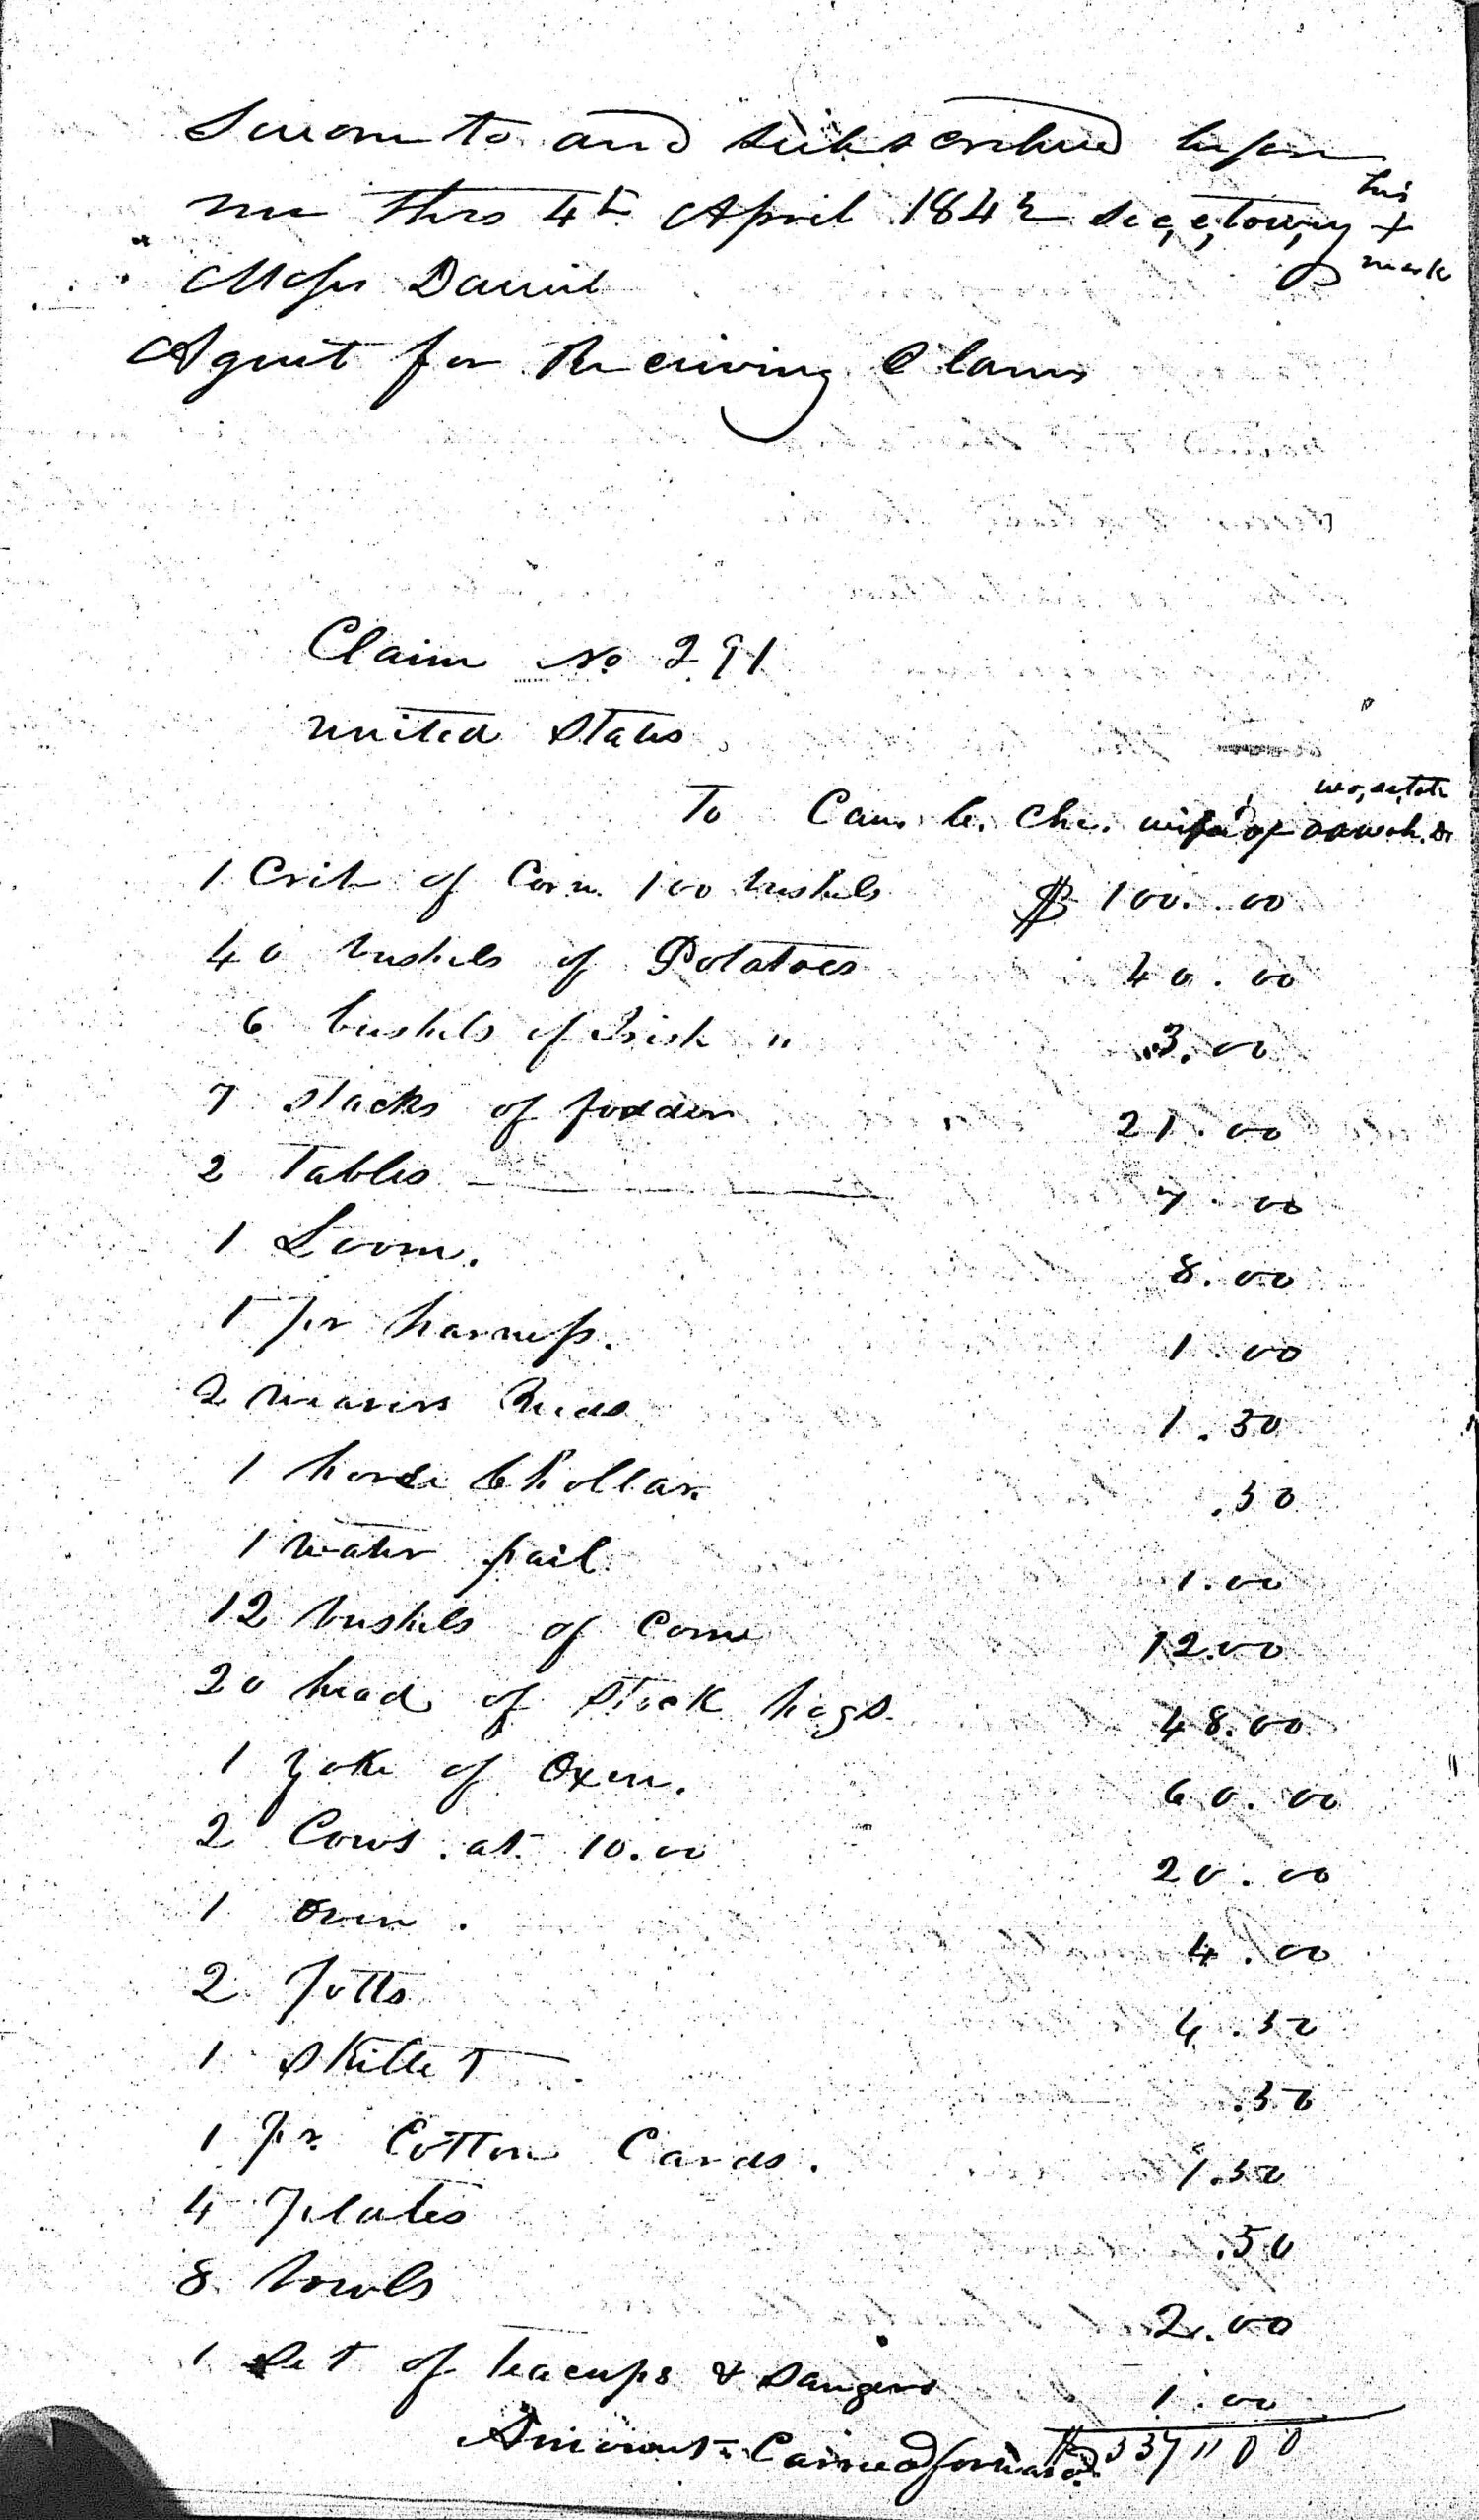 Sworn to and subscribed before
me this 4th April 1842 Sic,e,tow,y his x mark
Moses Daniel
Agent for Receiving Claims
Claim No 291
United States
wo,se,teh
To Can. le. Che. wife of
1 Crib of Corn 100 bushels $ 100.00
40 bushels of Potatoes 40.00
6 bushels of Irish " 3.00
7 stacks of fodder 21.00
2 Tables 7.00
1 Loom. 8.00
1 pr harness. 1.00
2 weavers Reeds 1.50
1 horse Chollar .50
1 water pail 1.00
12 bushels of Corn 12.00
20 head of stock hogs 48.00
1 yoke of Oxen. 60.00
2 Cows at 10.00 20.00
1 oven. 4.00
2 potts 4.50
1 skillet .50
1 pr. Cotton Cards. 1.50
4 plates .50
8 bowls 2.00
1 set of teacups & Saugers 1.00
Amount Carried forward $ 337"00